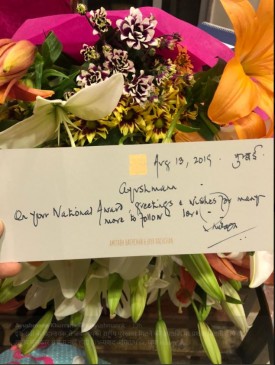 Aug 13, 2019. मुंबई.
Ayushmann -
On your National Award greetings & wishes for many
more to follow love -